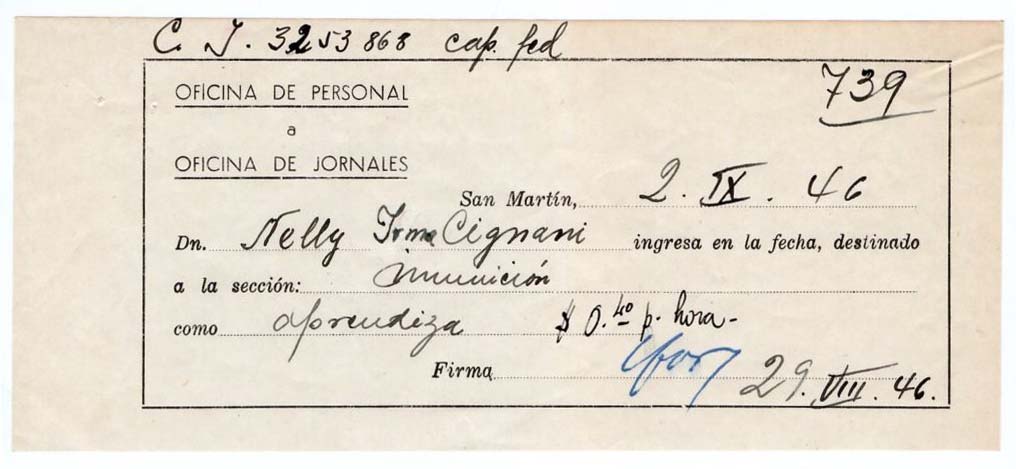 C. I. 3253868 cap. fed
739
OFICINA DE PERSONAL
a
OFICINA DE JORNALES
San Martín, 2. IX. 46
Dn. Nelly Irma Cignani ingresa en la fecha, destinado
a la sección: munición
como aprendiza $ 0.40 p. hora-
Firma 29. VIII. 46.